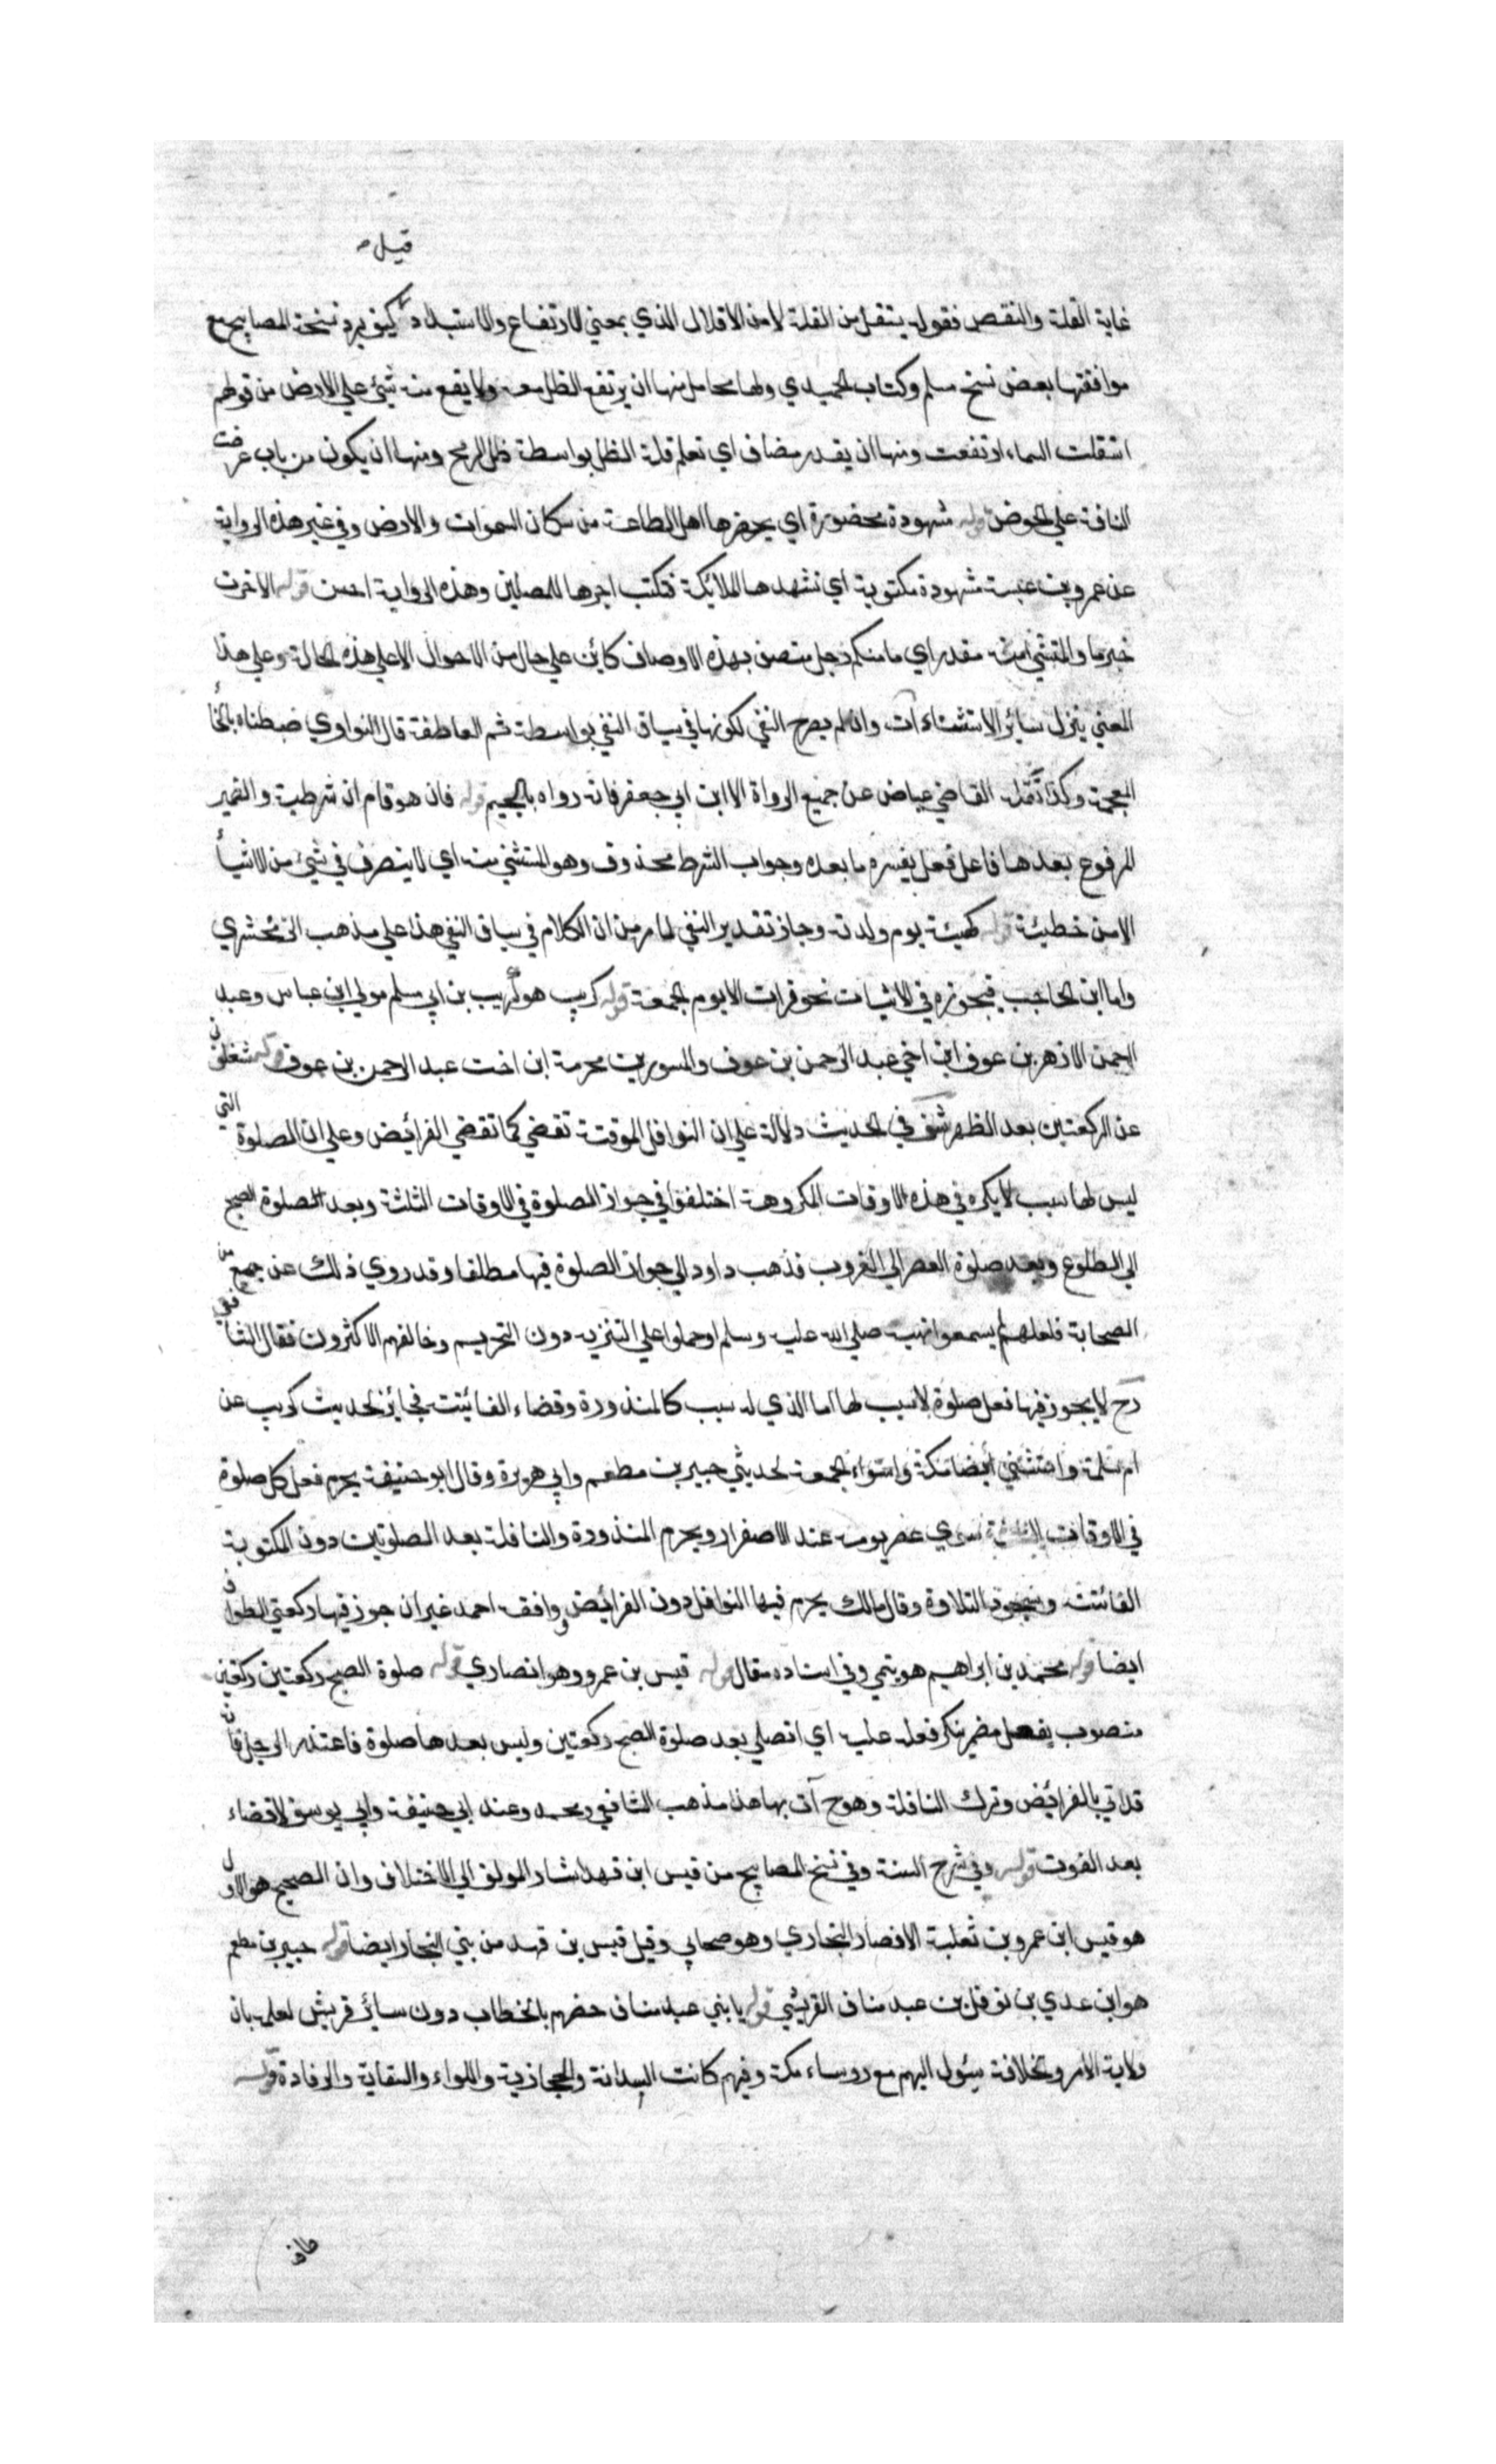 قيل
غاية القلة والنقص فقوله يتنقل من القلة لا من الاقلال الذي بمعني الارتفاع والاستبداد كيف يرد نسخة المصابيح مع
موافقتها بعض نسخ مسلم وكتاب الحميدي ولها محامل منها ان يرتفع الظل معه ولا يقع منه شيئ علي الارض من قولهم
استقلت السماء ارتفعت ومنها ان يقدر مضاف اي تعلم قلة الظل بواسطة ظل الرمح ومنها ان يكون من باب عرضت
الناقة علي الحوض قوله مشهودة محضورة اي يحضرها اهل الطاعة من سكان السموات والارض وفي غير هذه الرواية
عن عمرو بن عبسة مشهودة مكتوبة اي تشهدها الملائكة فتكتب اجرها للمصلين وهذه الرواية احسن قوله الاخرت
خبر ما والمستثني منه مقدر اي ما منكم رجل متصف بهذه الاوصاف كائن علي حال من الاحوال الا علي هذه الحالة وعلي هذا
المعني ينزل سائر الاستثناءات وان لم يصرح النفي لكونها في سياق النفي بواسطة ثم العاطفة قال النواوي ضبطناه بالخاء
المعجمة وكذا نقله القاضي عياض عن جميع الرواة الا ابن ابي جعفر فانه رواه بالجيم قوله فان هو قام ان شرطية والضمير
المرفوع بعدها فاعل فعل يفسره ما بعده وجواب الشرط محذوف وهو المستثني منه اي لا ينصرف في شيئ من الاشياء
الا من خطيئة قوله كهيئة يوم ولدته وجاز تقدير النفي لما مر من ان الكلام في سياق النفي هذا علي مذهب الزمخشري
واما ابن الحاجب فيجوزه في الاثبات نحو قرات الا يوم الجمعة قوله كريب هو كريب بن ابي مسلم مولي ابن عباس وعبد
الرحمن الازهر بن عوف ابن اخي عبد الرحمن بن عوف والمسور بن محرمة ابن اخت عبد الرحمن بن عوف قوله شغلوني
عن الركعتين بعد الظهر شف في الحديث دلالة علي ان النوافل الموقتة تقضي كما تقضي الفرائض وعلي ان الصلوة التي
ليس لها سبب لا يكره في هذه الاوقات المكروهة اختلفوا في جواز الصلوة في الاوقات الثلثة وبعد الصلوة الصبح
الي الطلوع وبعد صلوة العصر الي الغروب فذهب داود الي جواز الصلوة فيها مطلقا وقد روي ذلك عن جمع من
الصحابة فلعلهم لم يسمعوا نهيه صلي الله عليه وسلم او حملوا علي التنزيه دون التحريم وخالفهم الاكثرون فقال الشافعي
رح لا يجوز فيها فعل صلوة لا سبب لها اما الذي له سبب كالمنذورة وقضاء الفائتة فجائز لحديث كريب عن
ام سلمة واستثني ايضا مكة واستواء الجمعة لحديثي جبير بن مطعم وابي هريرة وقال ابو حنيفة يحرم فعل كل صلوة
في الاوقات الثلثة سوي عصر يومه عند الاصفرار ويحرم المنذورة والنافلة بعد الصلوتين دون المكتوبة
الفائتة وسجود التلاوة وقال مالك يحرم فيها النوافل دون الفرائض ووافقه احمد غير ان جوز فيها ركعتي الطواف
ايضا قوله محمد بن ابراهيم هو تيمي وفي اسناده مقال قوله قيس بن عمرو وهو انصاري قوله صلوة الصبح ركعتين ركعتين
منصوب بفعل مضمر ينكر فعله عليه اي اتصلي بعد صلوة الصبح ركعتين وليس بعدها صلوة فاعتذر الرجل فانه
قد اتي بالفرائض وترك النافلة وهو ح آت بها هذا مذهب الشافعي ومحمد وعند ابي حنيفة وابي يوسف لا قضاء
بعد الفوت قوله وفي شرح السنة وفي نسخ المصابيح من قيس ابن قهد اشار المولف الي الاختلاف وان الصحيح هو الاول
هو قيس ابن عمرو بن ثعلبة الانصار النجاري وهو صحابي وقيل قيس بن قهد من بني النجار ايضا قوله جبير بن مطعم
هو ابن عدي بن نوفل بن عبد مناف القريشي قوله يا بني عبد مناف خصهم بالخطاب دون سائر قريش لعلمه بان
ولاية الامر والخلافة سيئول اليهم مع روساء مكة وفيهم كانت السدانة والحجازية واللواء والسقاية والرفادة قوله